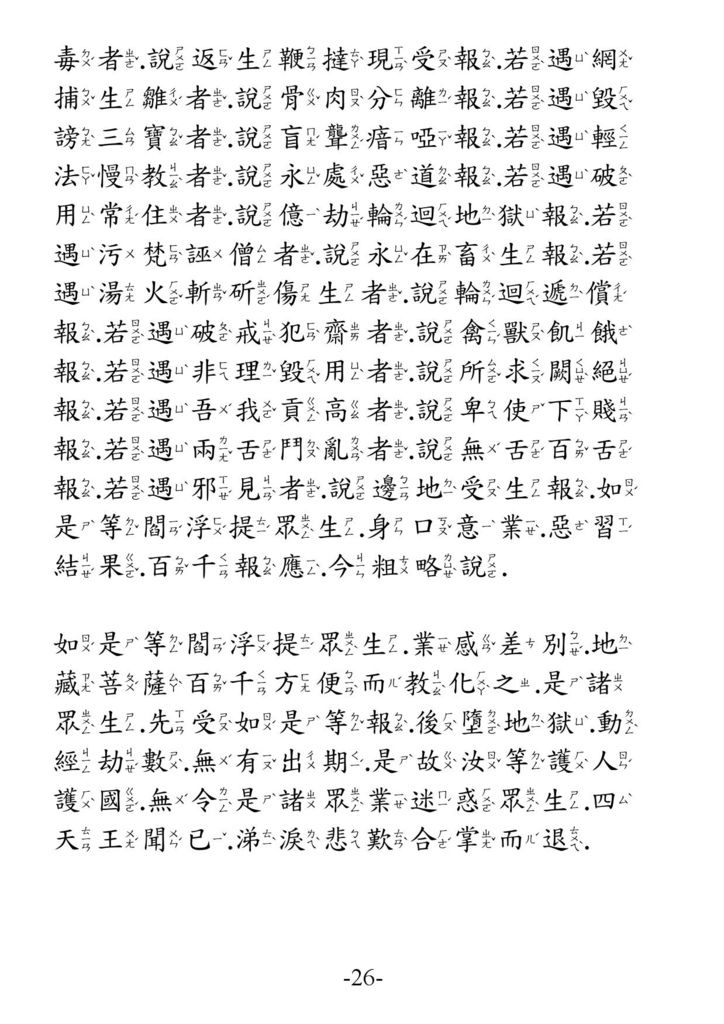 毒者.說返生鞭撻現受報.若遇網
捕生雛者.說骨肉分離報.若遇毀
謗三寶者.說盲聾瘖啞報.若遇輕
法慢教者.說永處惡道報.若遇破
用常住者.說億劫輪迴地獄報.若
遇污梵誣僧者.說永在畜生報.若
遇湯火斬斫傷生者.說輪迴遞償
報.若遇破戒犯齋者.說禽獸飢餓
報.若遇非理毀用者.說所求闕絕
報.若遇吾我貢高者.說卑使下賤
報.若遇兩舌鬥亂者.說無舌百舌
報.若遇邪見者.說邊地受生報.如
是等閻浮提眾生.身口意業.惡習
結果.百千報應.今粗略說.
如是等閻浮提眾生.業感差別.地
藏菩薩百千方便而教化之.是諸
眾生.先受如是等報.後墮地獄.動
經劫數.無有出期.是故汝等護人
護國.無令是諸眾業迷惑眾生.四
天王聞已.涕淚悲歎合掌而退.
-26-